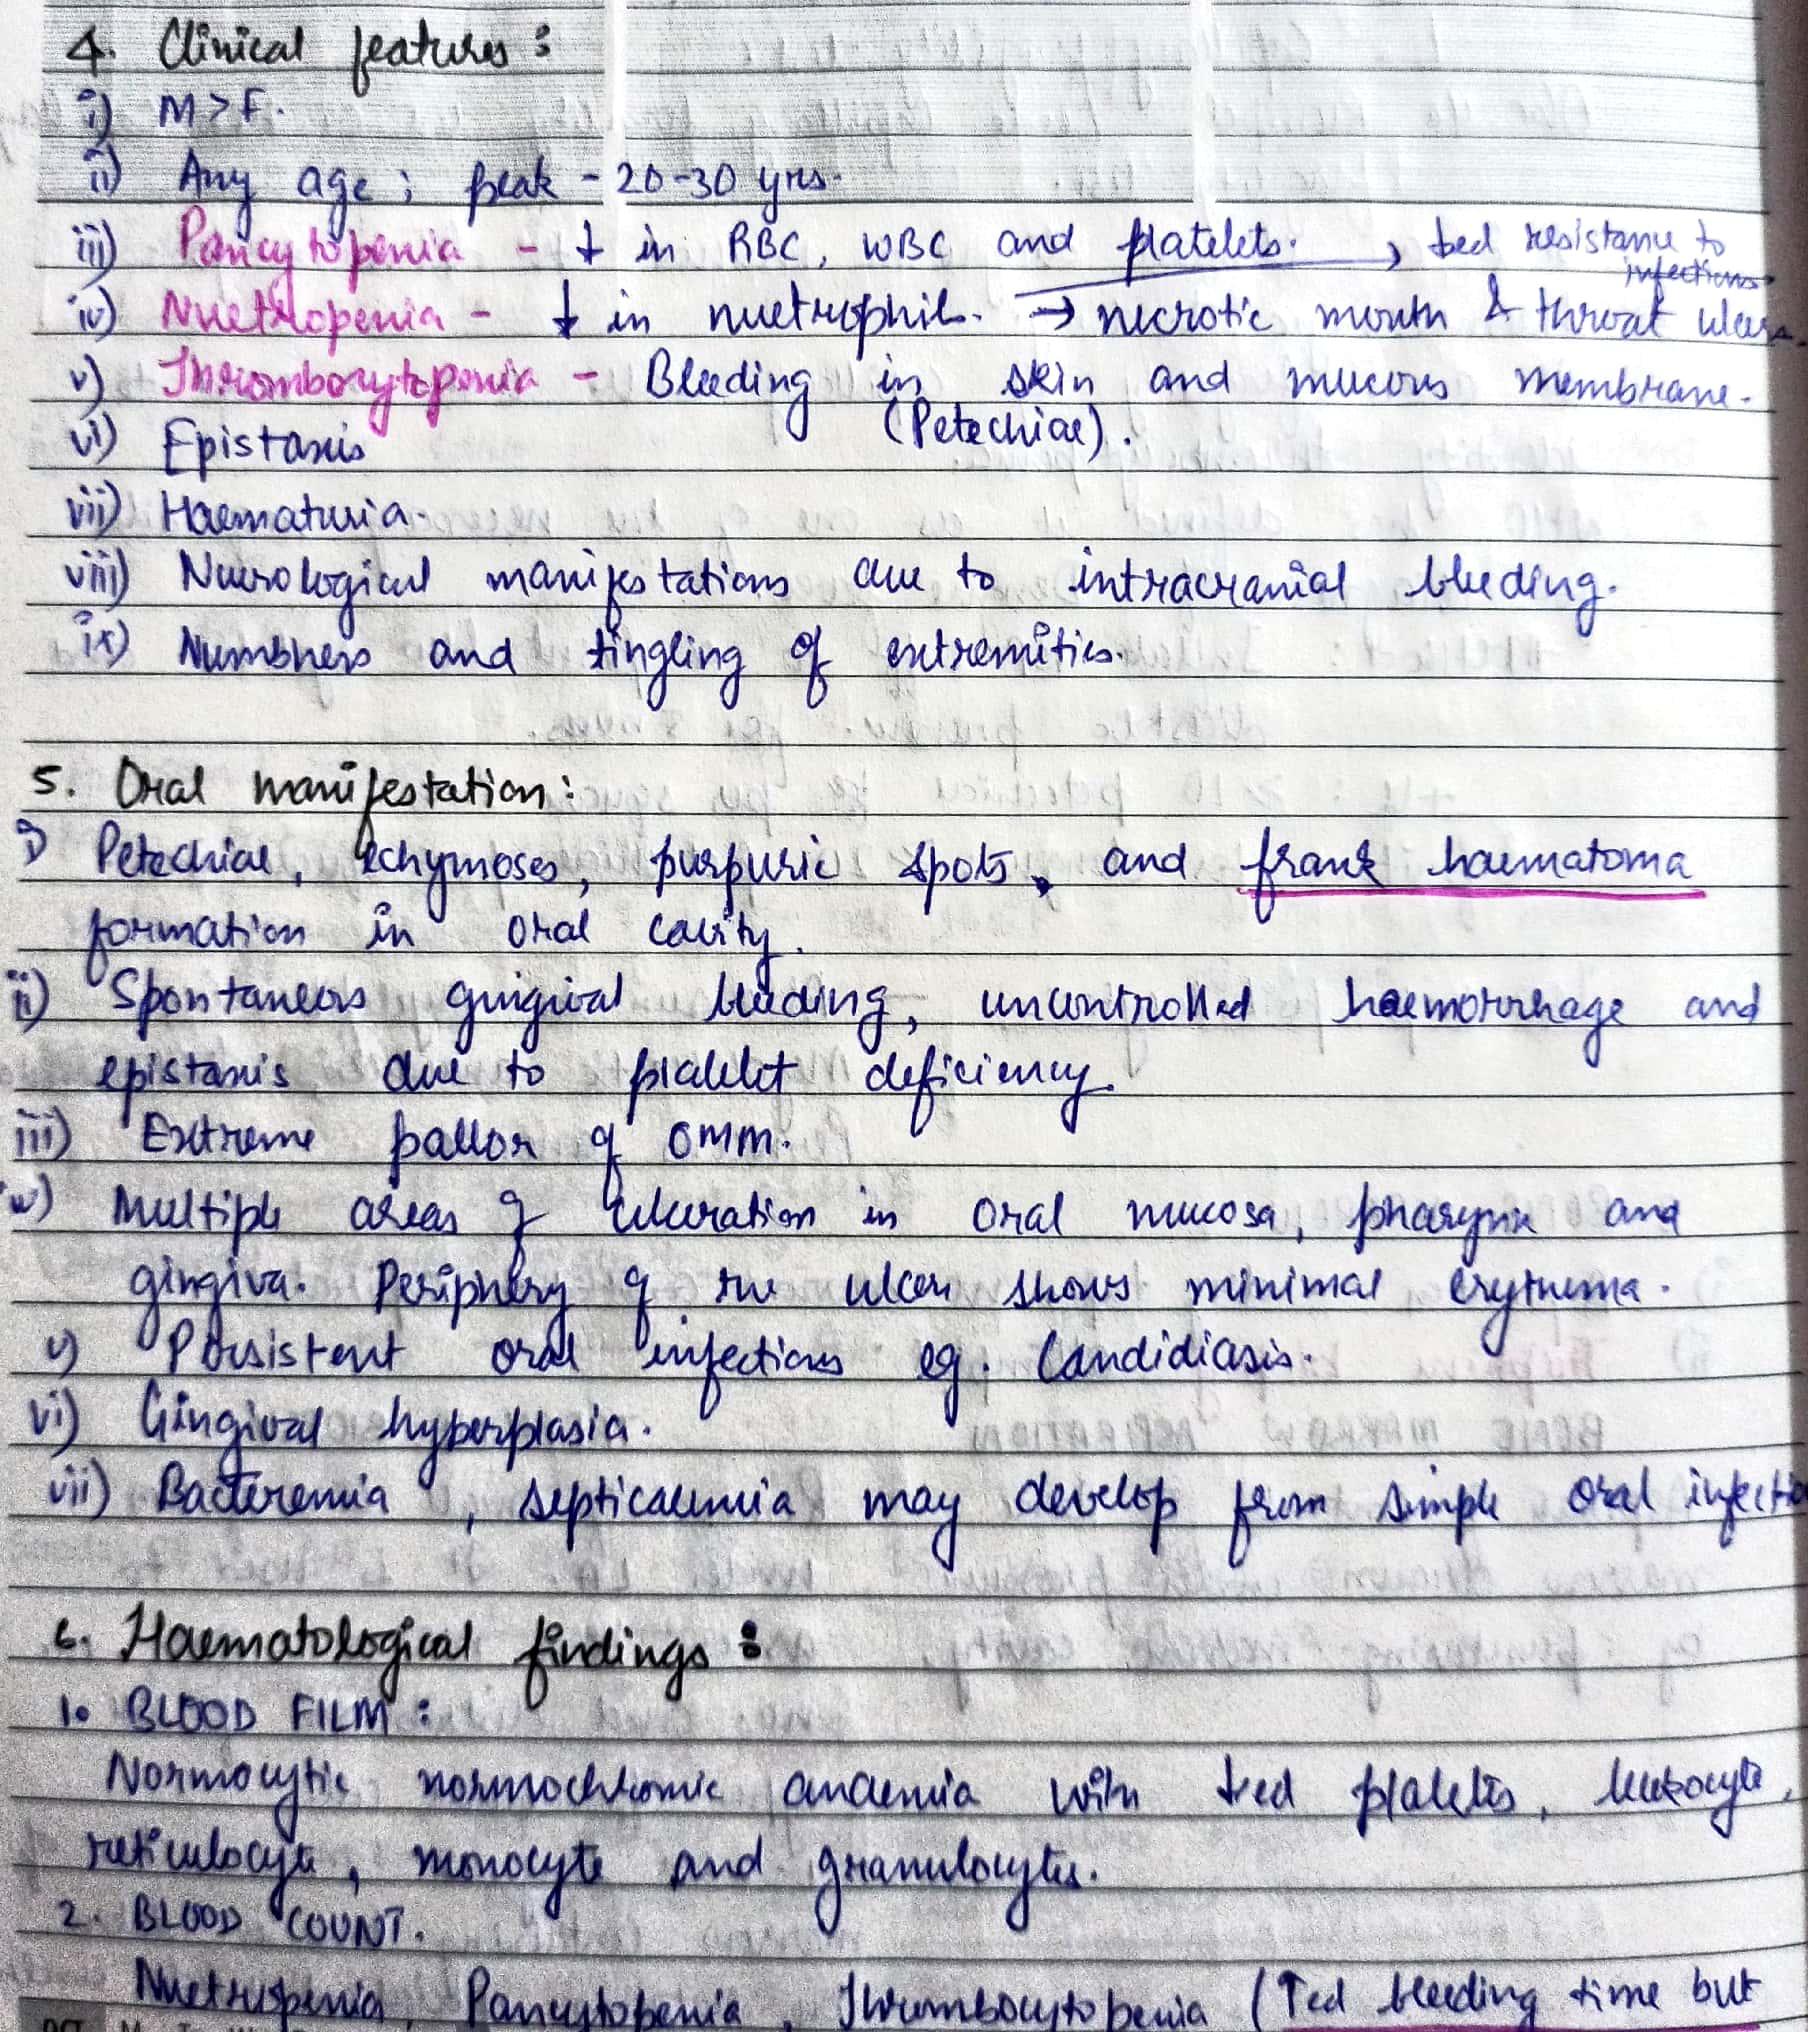 4. Clinical features :
i) M>F.
ii) Any age ; peak - 20-30 yrs.
iii) Pancytopenia - ↓ in RBC, WBC and platelets. → ↓sed resistance to infections
iv) Nuetropenia - ↓ in nuetrophil. → necrotic mouth & throat ulcers.
v) Thrombocytopenia - Bleeding in skin and mucous membrane.
(Petechiae).
vi) Epistaxis
vii) Haematuria.
viii) Neurological manifestations due to intracranial bleeding.
ix) Numbness and tingling of extremities.
5. Oral manifestation :
i) Petechiae, echymoses, purpuric spots, and frank haematoma
formation in oral cavity.
ii) Spontaneous gingival bleeding, uncontrolled haemorrhage and
epistaxis due to platelet deficiency.
iii) Extreme pallor of OMM.
iv) Multiple areas of ulceration in oral mucosa, pharynx and
gingiva. Periphery of the ulcer shows minimal erythema.
v) Persistent oral infections eg. Candidiasis.
vi) Gingival hyperplasia.
vii) Bacteremia, septicaemia may develop from simple oral infectio
6. Haematological findings :
1. BLOOD FILM :
Normocytic normochromic anaemia with ↓ed platelets, leukocyte,
reticulocyte, monocyte and granulocytes.
2. BLOOD COUNT.
Nuetropenia, Pancytopenia, Thrombocytopenia (↑ed bleeding time but